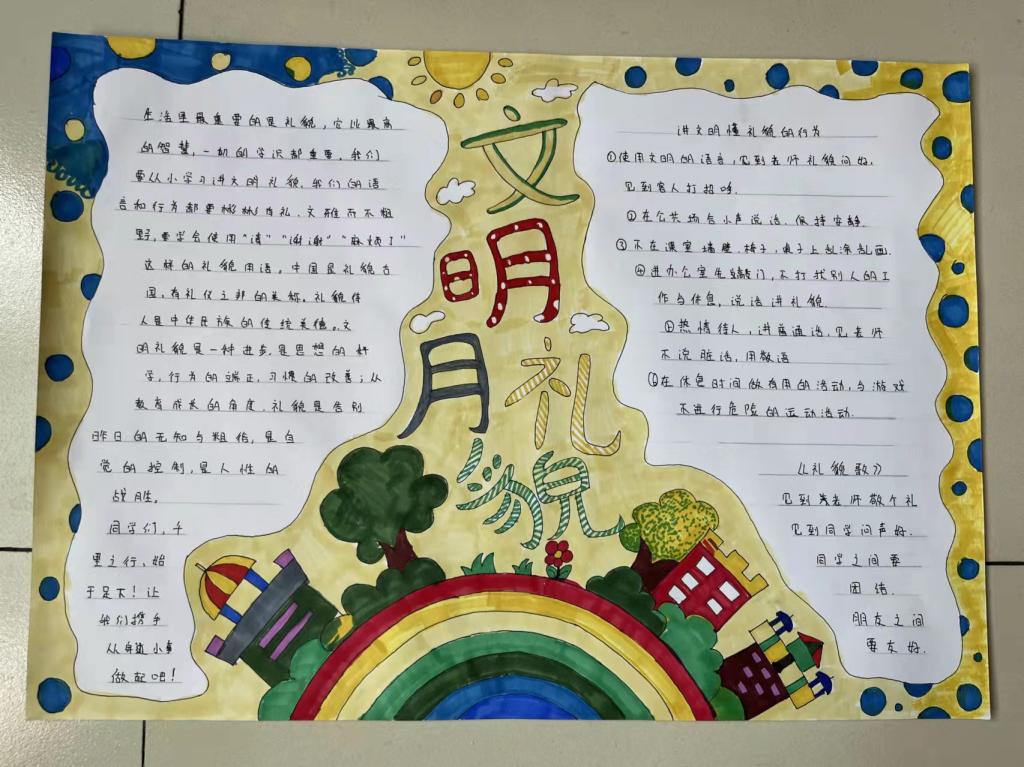 文明礼貌月
生活里最重要的是礼貌，它比最高
的智慧，一切的学识都重要。我们
要从小学习讲文明礼貌。我们的语
言和行为都要彬彬有礼、文雅而不粗
野，要学会使用“请”“谢谢”“麻烦了”
这样的礼貌用语。中国是礼貌古
国，有礼仪之邦的美称。礼貌待
人是中华民族的传统美德。文
明礼貌是一种进步，是思想的好
学，行为的端正，习惯的改善；从
教育成长的角度，礼貌是告别
昨日的无知与粗俗，是自
觉的控制，是人性的
战胜。
同学们，千
里之行、始
于足下！让
我们携手
从身边小事
做起吧！
讲文明懂礼貌的行为
①使用文明的语言，见到老师礼貌问好，
见到客人打招呼。
②在公共场合小声说话，保持安静
③不在课室墙壁、椅子，桌子上乱涂乱画
④进办公室先敲门，不打扰别人的工
作与休息，说话讲礼貌
热情待人，讲普通话，见老师
不说脏话，用敬语
⑥在休息时间做有用的活动，与游戏
不进行危险的运动活动
《礼貌歌》
见到老师敬个礼
见到同学问声好.
同学之间要
团结.
朋友之间
要友好.